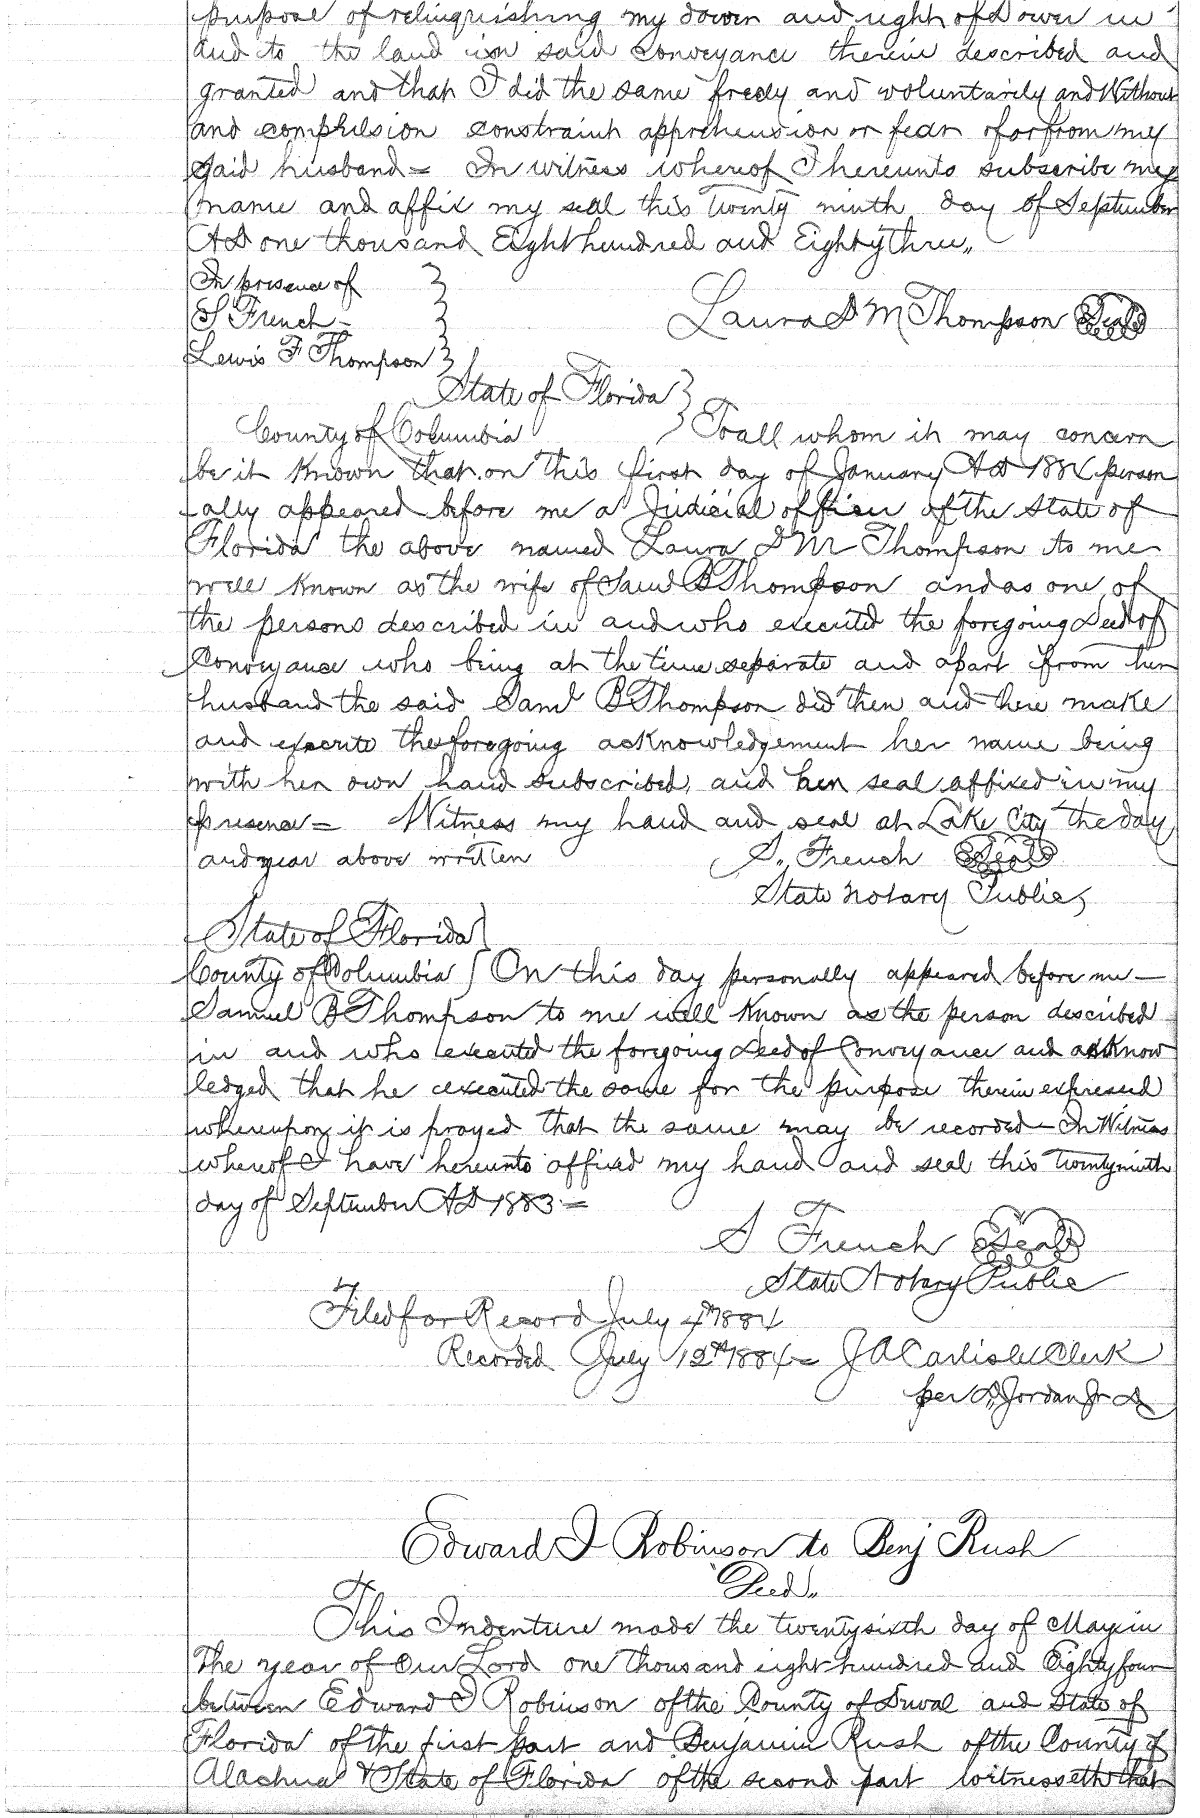 purpose of relinquishing my dower and right of Dower in
and to the land in said conveyance therein described and
granted and that I did the same freely and voluntarily and Without
and compulsion constraint apprehension or fear of or from my
said husband = In witness whereof I hereunto subscribe my
name and affix my seal this Twenty ninth day of September
AD one thousand Eight hundred and Eighty three,,
In presence of
S French -
Laura D M Thompson Seal
Lewis F Thompson
State of Florida
County of Columbia To all whom it may concern
be it known that on this first day of January AD 1884 person
ally appeared before me a Judicial officer of the State of
Florida the above named Laura D M Thompson to me
well known as the wife of Saml B Thompson and as one of
the persons described in and who executed the foregoing deed of
Conveyance who being at the time separate and apart from her
husband the said Saml B Thompson did then and there make
and execute the foregoing acknowledgement her name being
with her own hand subscribed, and her seal affixed in my
presence = Witness my hand and seal at Lake City the day
and year above written S. French Seal
State Notary Public,
State of Florida
County of Columbia On this day personally appeared before me —
Samuel B Thompson to me well known as the person described
in and who executed the foregoing deed of Conveyance and acknow
ledged that he executed the same for the purpose therein expressed
whereupon it is prayed that the same may be recorded — In Witness
whereof I have hereunto affixed my hand and seal this Twenty ninth
day of September AD 1883 =
S French Seal
State Notary Public
Filed for Record July 4th 1884
Recorded July 12th 1884 = J A Carlisle Clerk
per D. Jordan Jr D
Edward I Robinson to Benj Rush
"Deed,,
This Indenture made the twenty sixth day of May in
The year of Our Lord one thousand eight hundred and Eighty four
between Edward I Robinson of the County of Duval and State of
Florida of the first part and Benjamin Rush of the County of
Alachua & State of Florida of the second part witnesseth that